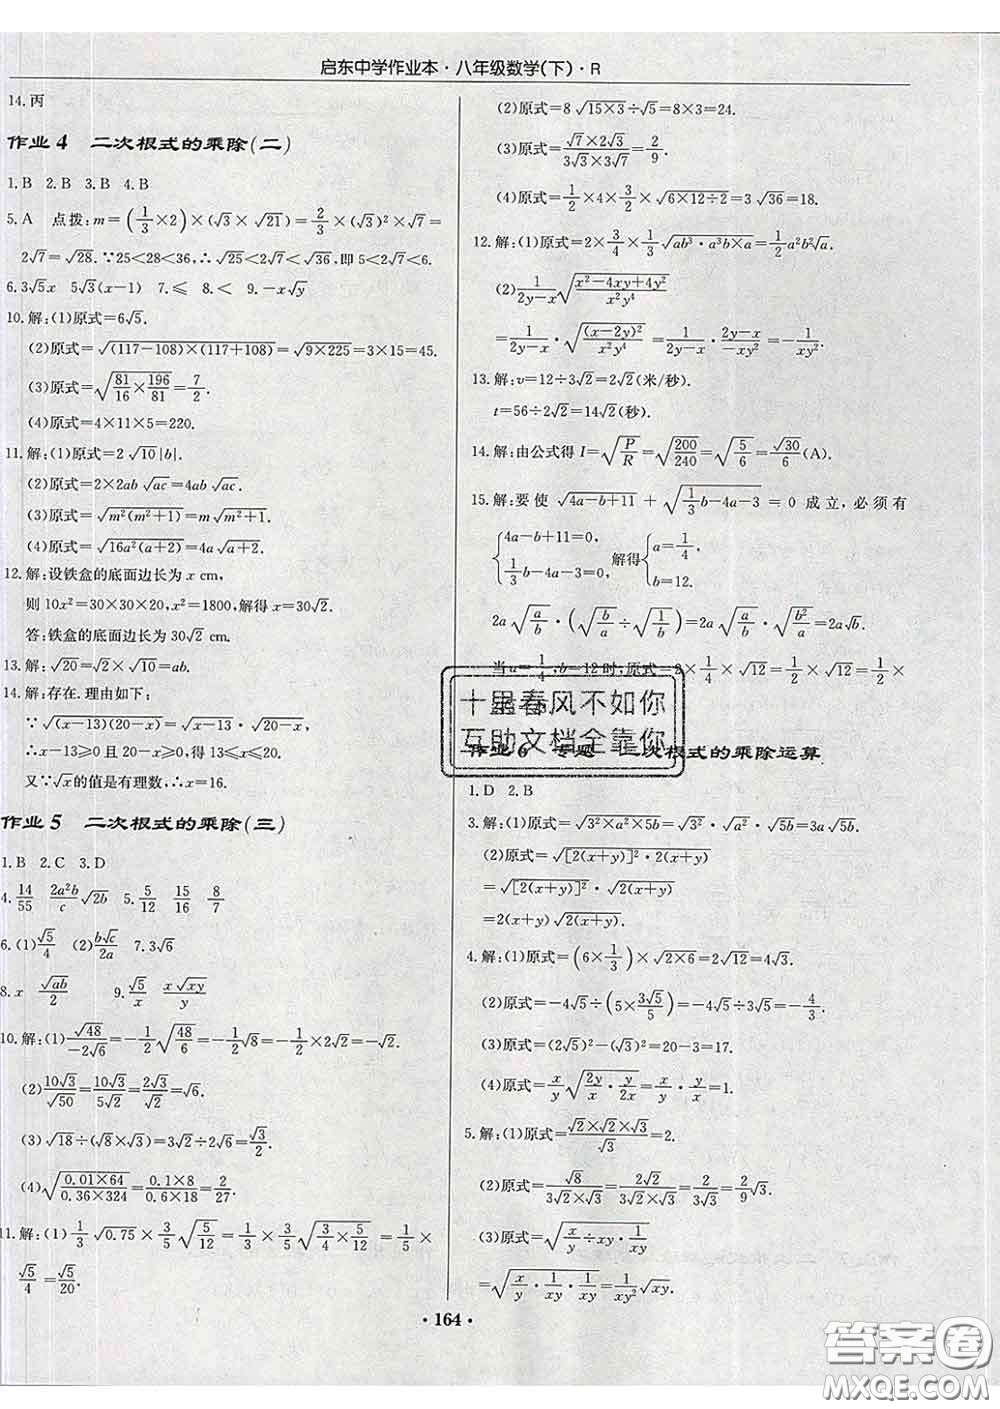 启东中学作业本·八年级数学(下)·R
14.丙
作业4 二次根式的乘除(二)
1.B 2.B 3.B 4.B
5.A 点拨:m=(1/3×2)×(√3×√21)=2/3×(√3)²×√7=
2√7=√28.∵25<28<36,∴√25<2√7<√36,即5<2√7<6.
6.3√5x 5√3(x−1) 7.≤ 8.< 9.−x√y
10.解:(1)原式=6√5.
(2)原式=√((117−108)×(117+108))=√(9×225)=3×15=45.
(3)原式=√(81/16×196/81)=7/2.
(4)原式=4×11×5=220.
11.解:(1)原式=2√10|b|.
(2)原式=2×2ab√ac=4ab√ac.
(3)原式=√(m²(m²+1))=m√(m²+1).
(4)原式=√(16a²(a+2))=4a√(a+2).
12.解:设铁盒的底面边长为x cm,
则10x²=30×30×20,x²=1800,解得x=30√2.
答:铁盒的底面边长为30√2 cm.
13.解:√20=√2×√10=ab.
14.解:存在.理由如下:
∵√((x−13)(20−x))=√(x−13)·√(20−x),
∴x−13≥0且20−x≥0,得13≤x≤20.
又∵√x的值是有理数,∴x=16.
作业5 二次根式的乘除(三)
1.B 2.C 3.D
4.14/55 2a²b/c√2b 5.5/12 15/16 8/7
6.(1)√5/4 (2)b√c/2a 7.3√6
8.x √ab/2 9.√5/x x√xy/y
10.解:(1)√48/−2√6=−1/2√(48/6)=−1/2√8=−1/2×2√2=−√2.
(2)10√3/√50=10√3/5√2=2√3/√2=√6.
(3)√18÷(√8×√3)=3√2÷2√6=√3/2.
(4)√(0.01×64/0.36×324)=0.1×8/0.6×18=2/27.
11.解:(1)1/3√0.75×3/5√(5/12)=1/3×3/5√(3/4×5/12)=1/5×
√5/4=√5/20.
(2)原式=8√(15×3)÷√5=8×3=24.
(3)原式=√7×2√3/3√3×3√7=2/9.
(4)原式=1/2×4×3/2×√(6×12÷2)=3√36=18.
12.解:(1)原式=2×3/4×1/3×√(ab³·a³b×a)=1/2a²b²√a.
(2)1/(2y−x)√((x²−4xy+4y²)/x²y⁴)
=1/(2y−x)·√((x−2y)²/x²y⁴)=1/(2y−x)·(2y−x)/−xy²=−1/xy².
13.解:v=12÷3√2=2√2(米/秒).
t=56÷2√2=14√2(秒).
14.解:由公式得I=√(P/R)=√(200/240)=√(5/6)=√30/6(A).
15.解:要使√(4a−b+11)+√(1/3b−4a−3)=0成立,必须有
{4a−b+11=0, 1/3b−4a−3=0, 解得{a=1/4, b=12.
2a√(a/b)·(√(b/a)÷√(1/b))=2a√(a/b)·√(b²/a)=2a√b.
当a=1/4,b=12时,原式=2×1/4×√12=1/2×√12=1/2×
作业6 专题 二次根式的乘除运算
1.D 2.B
3.解:(1)原式=√(3²×a²×5b)=√3²·√a²·√5b=3a√5b.
(2)原式=√([2(x+y)]²·2(x+y))
=√[2(x+y)]²·√2(x+y)
=2(x+y)√2(x+y).
4.解:(1)原式=(6×1/3)×√(2×6)=2√12=4√3.
(2)原式=−4√5÷(5×3√5/5)=−4√5÷3√5=−4/3.
(3)原式=(2√5)²−(√3)²=20−3=17.
(4)原式=x/y√(2y/x·y/2x)=x/y·y/x=1.
5.解:(1)原式=√2×√2×√3/√3=2.
(2)原式=√8/3√2×√3=2√2/3√2×√3=2/3√3=2/9√3.
(3)原式=√(x/y÷xy·1/xy)
=√(x/y·1/xy·1/xy)=1/xy²√xy.
·164·
十里春风不如你
互助文档全靠你
答案圈
MXQE.COM